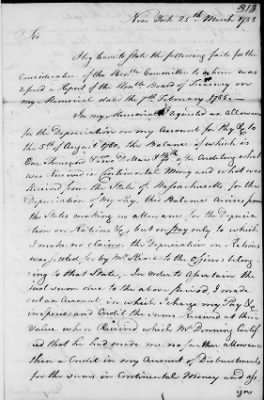 313
New York 25th March 1788
Sir
I beg leave to state the following facts for the
Consideration of the Honble Committee to whom was
refered a Report of the Honble Board of Treasury on
my Memorial dated the 7th February 1788.
In my Memorial I requested an Allowance
for the Depreciation on my Account for Pay &c to
the 5th of August 1780, the Balance of which is
One Thousand & Two Dollars after Crediting what
was Received in Continental Money and what was
Received from the State of Massachusetts for the
Depreciation of my Pay, this Balance arises from
the States making no allowance for the Deprecia-
tion on Rations &c, but on pay only to which
I made no claim. the Depreciation on Rations
was for by Mr to the officers belong
ing to that State, In order to ascertain the
just sum due to the above period, I made
out an Account in which I charge my Pay &c
in specie and Credit the sums Received at their
Value when Received which Mr Dunning Certif
ied that he had made me no further Allowance
than a Credit in my Account of Disbursements
for the sums in Continental Money and